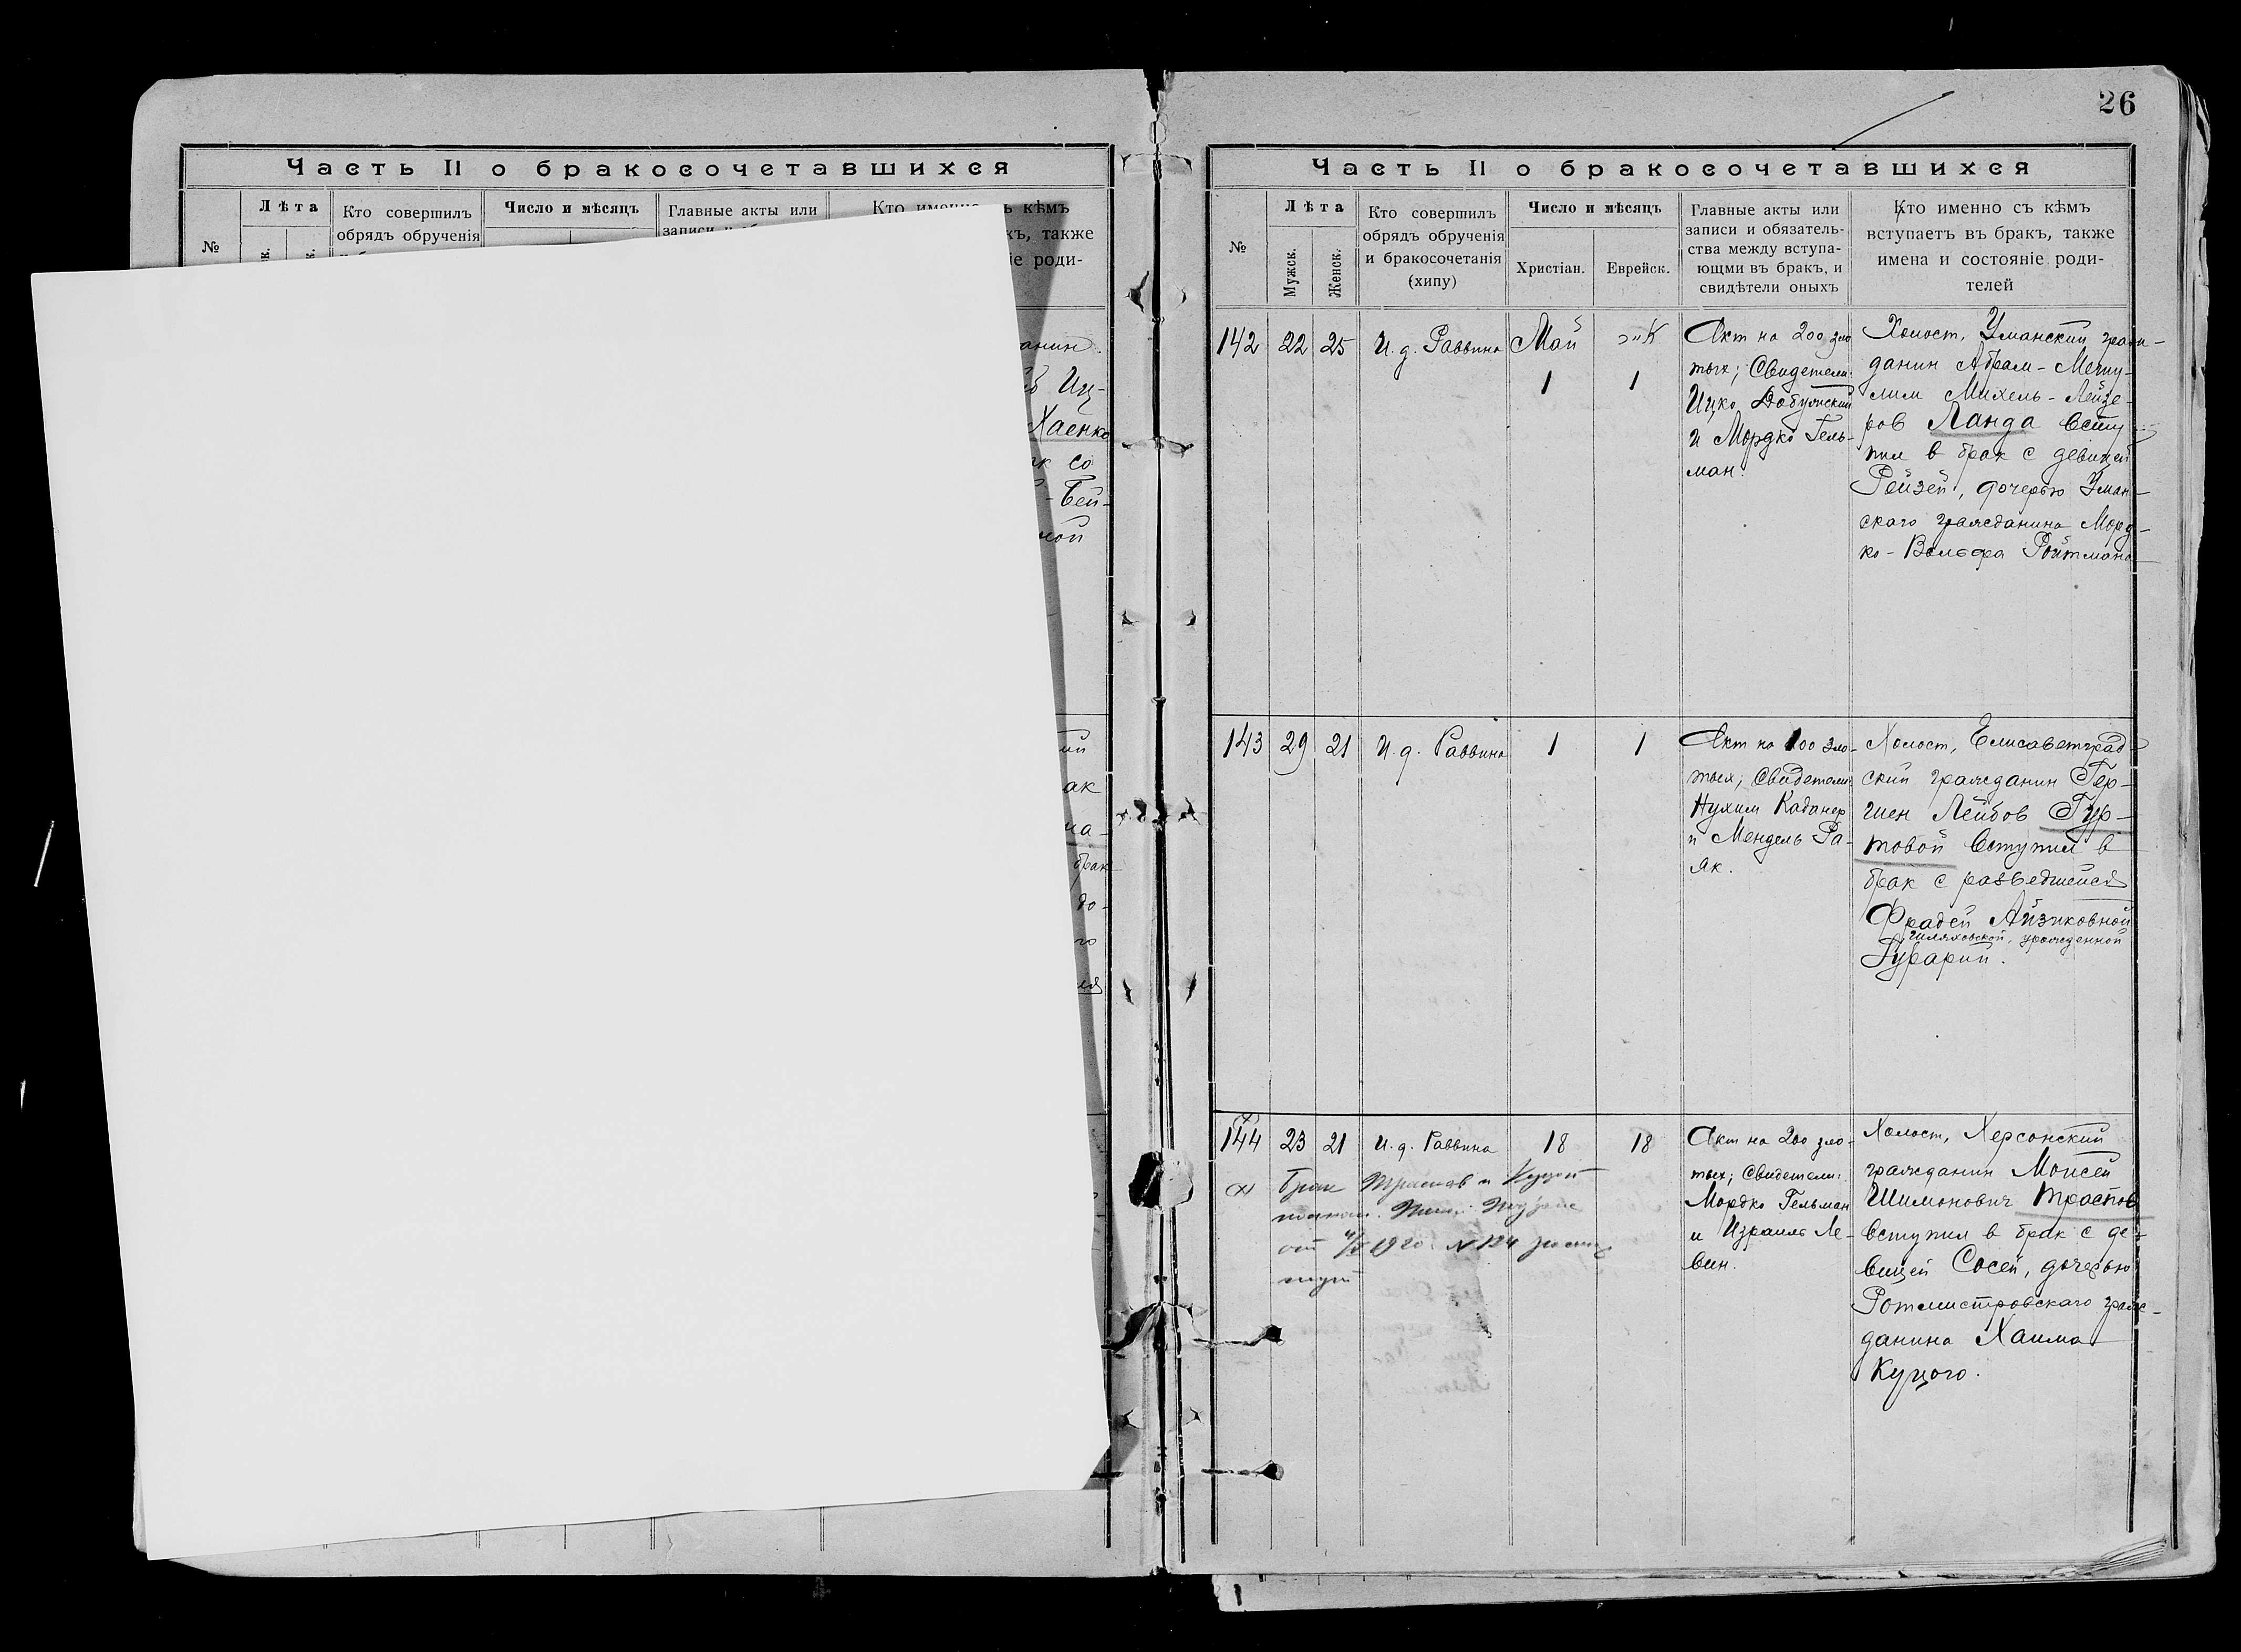 26
Часть II о бракосочетавшихся
Лѣта
№
Кто совершилъ
обрядъ обрученія
Число и мѣсяцъ
Главные акты или
также
роди-
Хаенко
со
-Бей-
ной
ак
на-
брак
до-
го
Часть II о бракосочетавшихся
№
Лѣта
Мужск.
Женск.
Кто совершилъ
обрядъ обрученія
и бракосочетанія
(хипу)
Число и мѣсяцъ
Христіан.
Еврейск.
Главные акты или
записи и обязатель-
ства между вступа-
ющми въ бракъ, и
свидѣтели оныхъ
Кто именно съ кѣмъ
вступаетъ въ бракъ, также
имена и состояніе роди-
телей
142
22
25
И. д. Раввина
Май
1
1
Акт на 200 зло
тых; Свидетели:
Ицко Добулнский
и Мордко Гель-
ман.
Холост, Уманский граж-
данин Абрам-Мешу-
лим Михель-Лейзе-
ров Ланда всту-
пил в брак с девицей
Рейзей, дочерью Уман-
скаго гражданина Морд-
ко-Вольфа Ройтмана
143
29
21
И. д. Раввина
1
1
Акт на 100 зло-
тых; Свидетели:
Нухим Каданер
и Мендель Ра-
як.
Холост, Елисаветград-
ский гражданин Гер-
шен Лейбов Гур-
товой вступил в
брак с разведшейся
Фрадей Айзиковной
Шляховской, урожденной
Гурарий.
144
23
21
И. д. Раввина
18
18
Акт на 200 зло-
тых; Свидетели:
Мордко Гельман
и Израиль Ле-
вин.
Холост, Херсонский
гражданин Моисей
Шимонович Трастов
вступил в брак с де-
вицей Сосей, дочерью
Ротмистровскаго граж-
данина Хаима
Куцого.
Брак и Куцой
от 1920 N 124